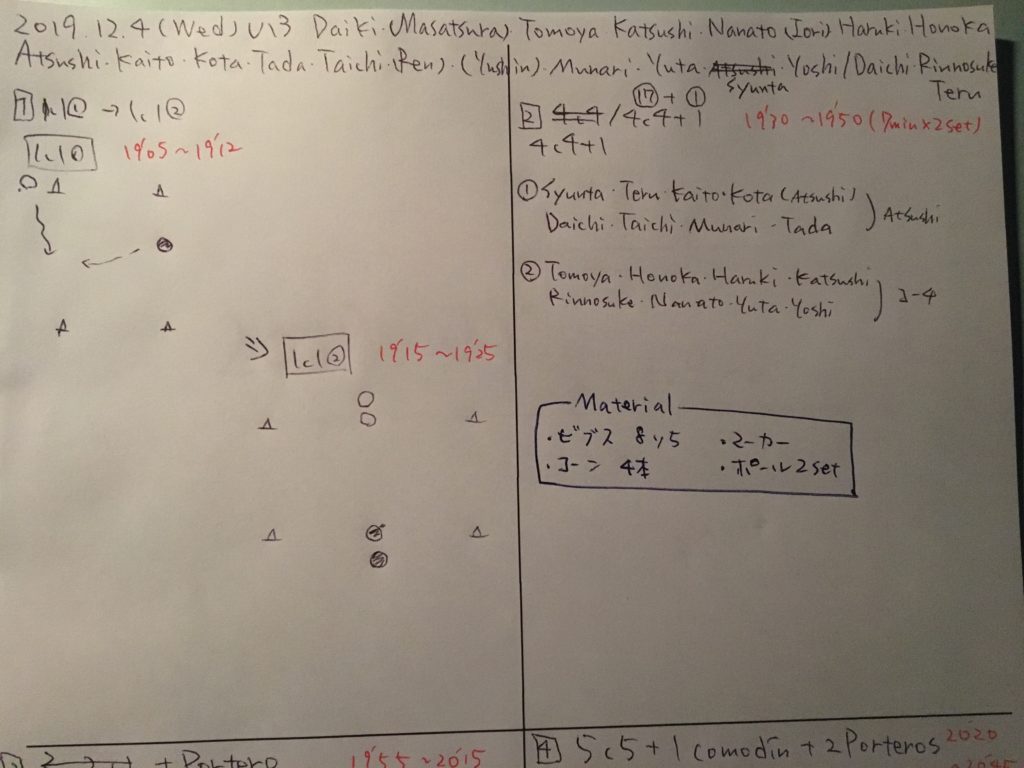 2019.12.4 (Wed) U13 Daiki・(Masatsura)・Tomoya Katsushi・Nanato・(Iori)・Haruki・Honoka
Atsushi・Kaito・Kota・Tada・Taichi・(Ren)・(Yushin)・Munari・Yuta・Atsushi Yoshi/Daichi・Rinnosuke
Syunta
Teru
1 1c1① → 1c1②
1c1① 19'05~19'12
1c1② 19'15~19'25
⑰+①
2 4c4/4c4+1 19'30~19'50 (7min×2set)
4c4+1
① Syunta・Teru・Kaito・Kota (Atsushi)
Daichi・Taichi・Munari・Tada
Atsushi
② Tomoya・Honoka・Haruki・Katsushi
Rinnosuke・Nanato・Yuta・Yoshi
コーチ
Material
・ビブス 8ツ5 ・マーカー
・コーン 4本 ・ポール2set
+ Portero 19'55~20'15
4 5c5+1 comodín+2Porteros 20'20
~20'45